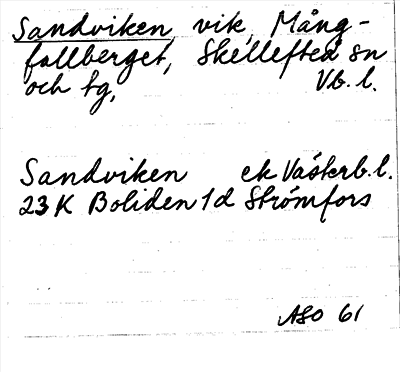 Sandviken, vik, Mång-
fallberget, Skellefteå sn
och tg, Vb. l.
Sandviken ek Västerb.l.
23 K Boliden 1d Strömfors
ASO 61